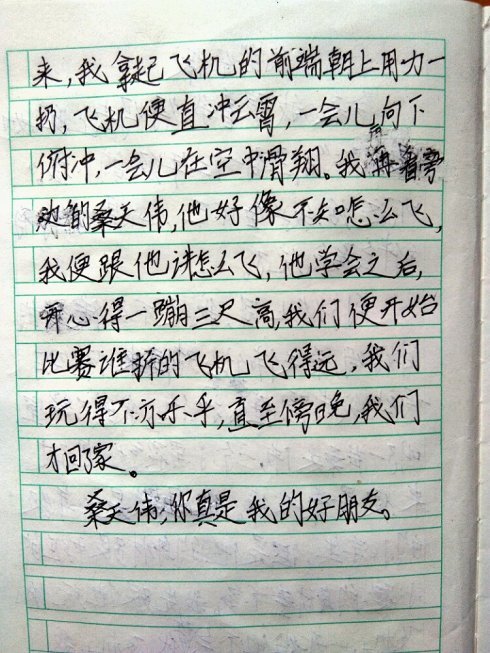 来,我拿起飞机的前端朝上用力一
扔,飞机便直冲云霄,一会儿向下
俯冲,一会儿在空中滑翔。我再看旁
边的桑天伟,他好像不知怎么飞,
我便跟他讲怎么飞,他学会之后,
开心得一蹦三尺高,我们便开始
比赛谁折的飞机飞得远,我们
玩得不亦乐乎,直至傍晚,我们
才回家。
桑天伟,你真是我的好朋友。